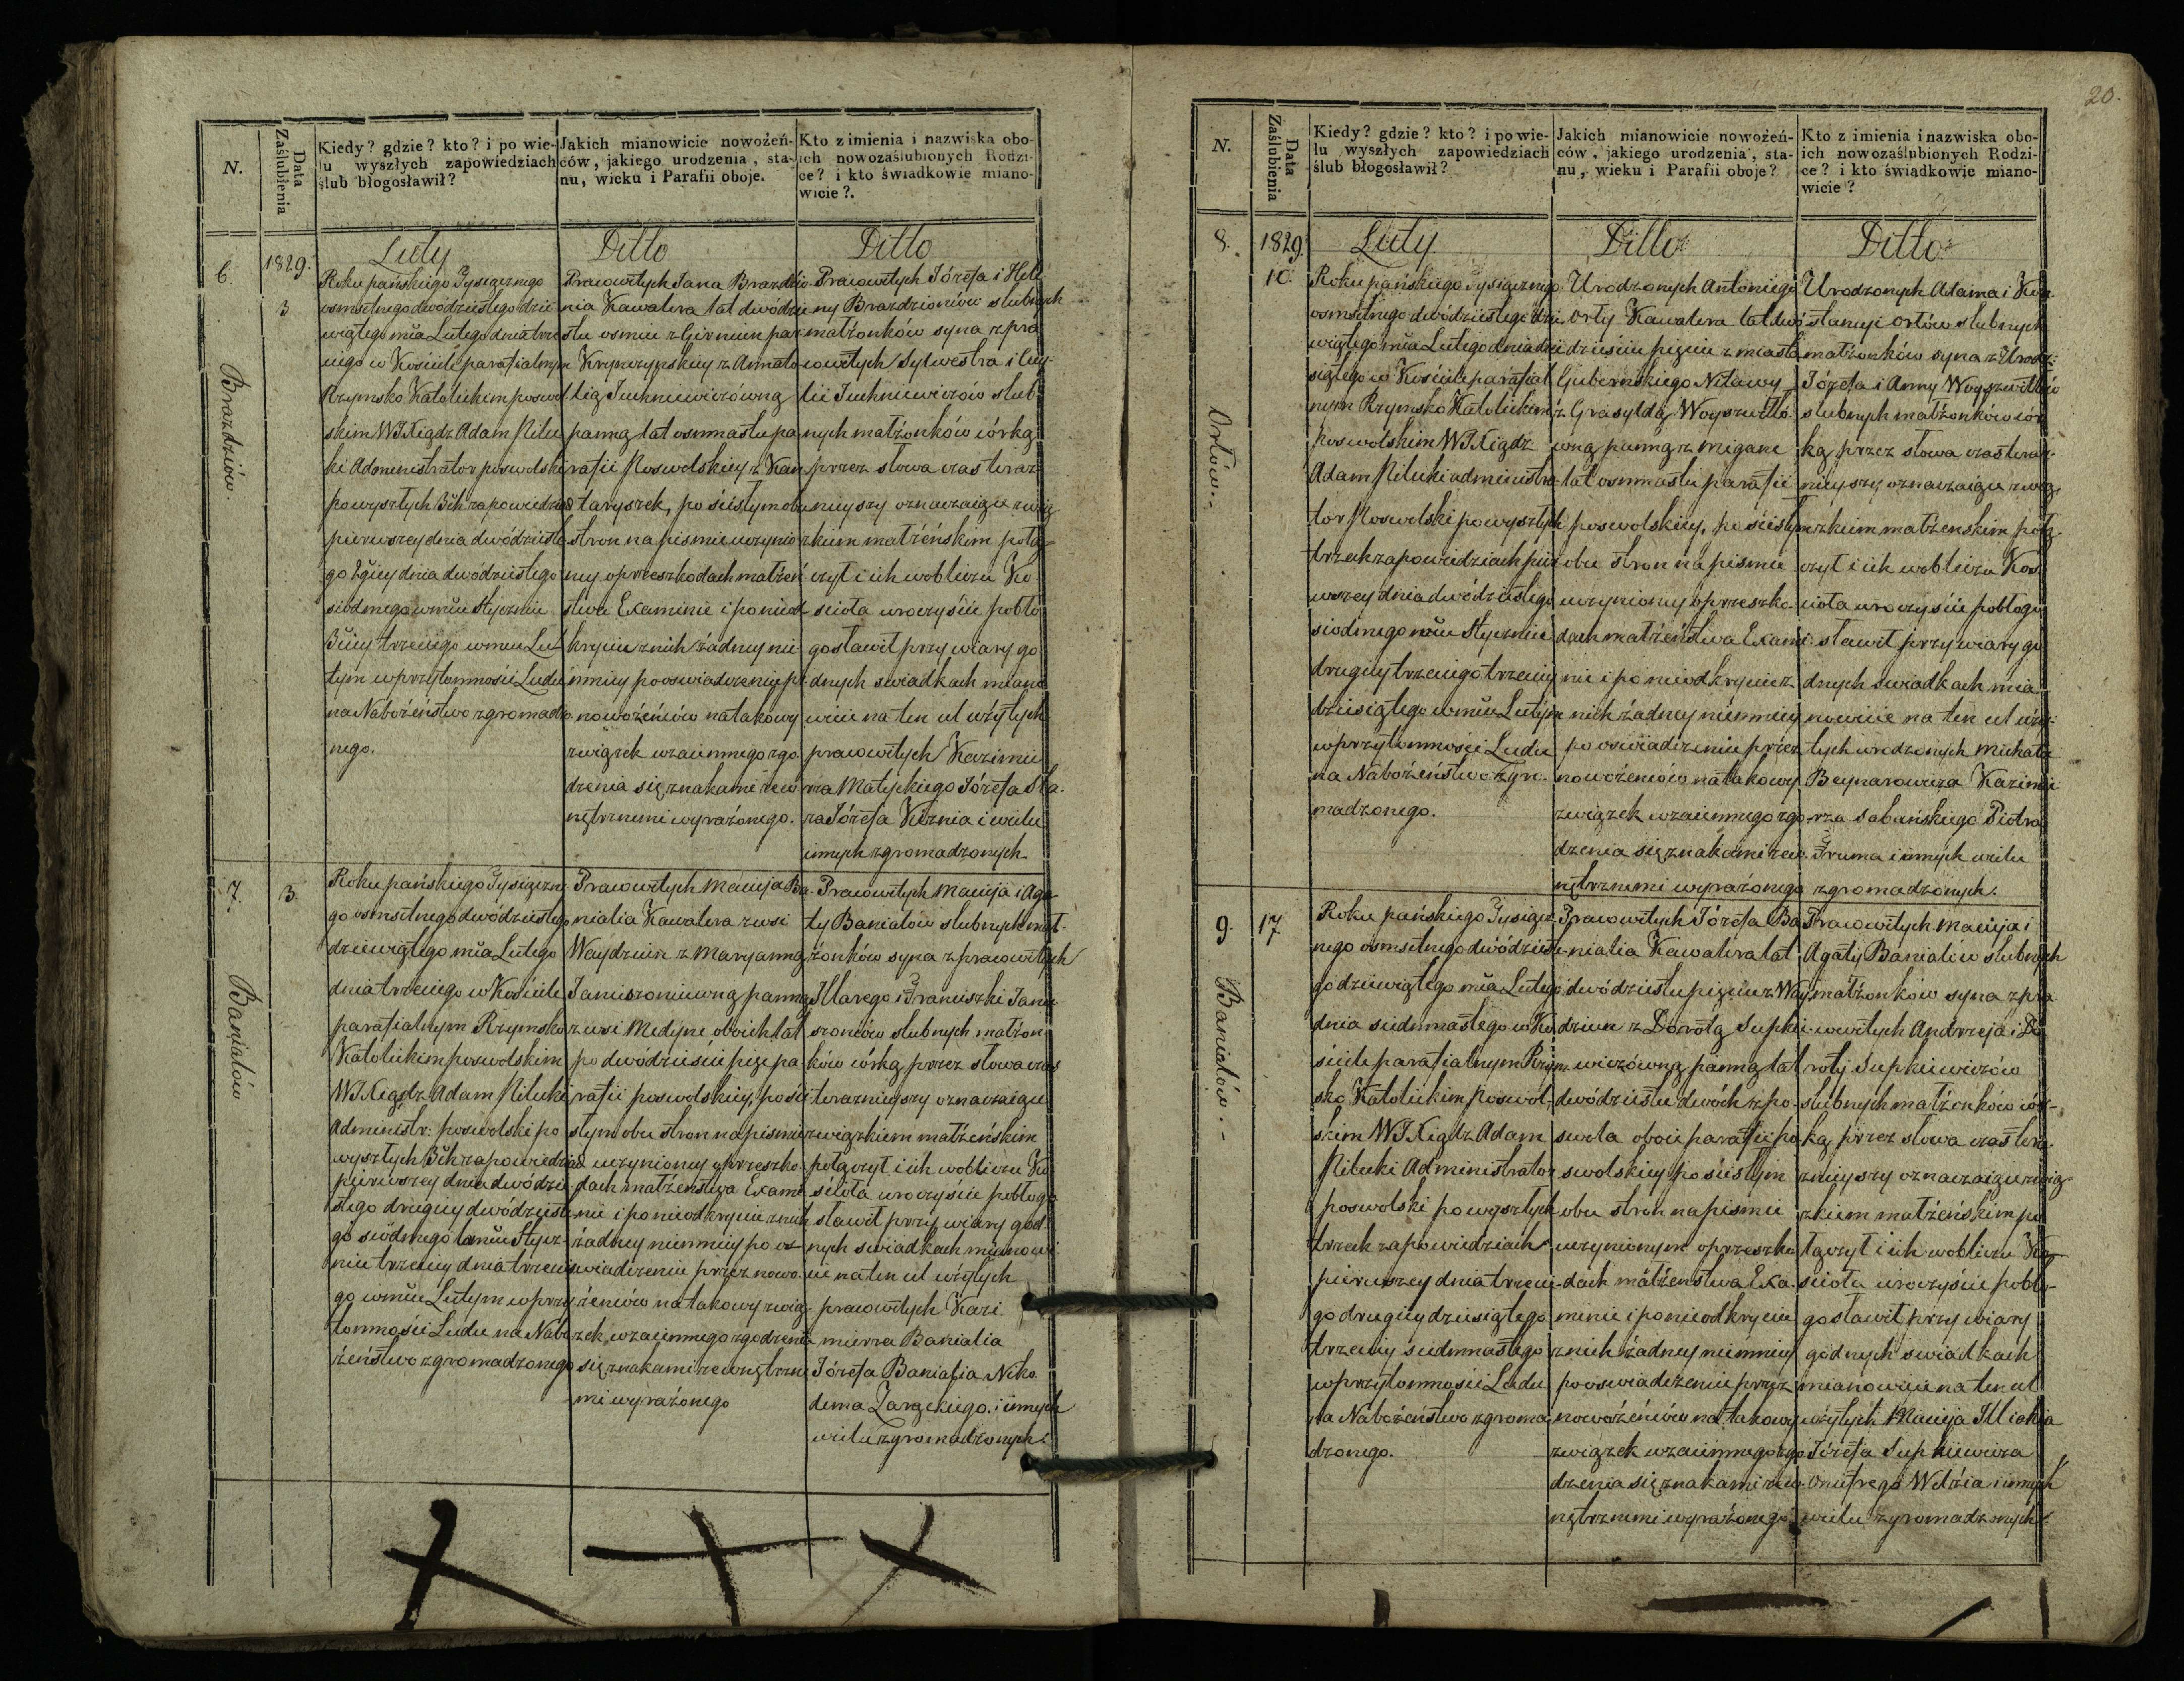 N.
Data Zaślubienia
Kiedy? gdzie? kto? i po wie-
lu wyszłych zapowiedziach
ślub błogosławił?
Jakich mianowicie nowożeń-
ców, jakiego urodzenia, sta-
nu, wieku i Parafii oboje.
Kto z imienia i nazwiska obo-
ich nowozaślubionych Rodzi-
ce? i kto świadkowie miano-
wicie?.
6.
1829.
3
Brazdziów.
Luty
Roku pańskiego Tysiącznego
osmsetnego dwódziestego dzie
wiątego mca Lutego dnia trze
ciego w Kościele parafialnym
Rzymsko Katolickim poswol
skim WJXiądz Adam Pilec
ki Administrator poswolski
po wyszłych 3ch zapowiedziach
pierwszey dnia dwódzieste
go 2giey dnia dwódziestego
siodmego w mcu Styczniu
3ciey trzeciego w mcu Lu
tym w przytomności Ludu
na Nabożeństwo zgromadzo
nego.
Ditto
Pracowitych Jana Brazdzio
nia Kawalera lat dwódzie
stu osmiu z Girniun par
Krynczynskiey z Amato
lią Juchniewiczówną
panną lat osmnastu pa
rafii Poswolskiey z Kan
taryszek, po ścisłym obu
stron na pismie uczynio
ney o przeszkodach małżeń
stwa Examinie i po nieod
kryciu z nich żadney nie
mniey po oswiadczeniu prz
nowożeńców na takowy
związek wzaiemnego zgo
dzenia się znakami zew
nętrznemi wyrażonego.
Ditto
Pracowitych Józefa i Hele
ny Brazdzioniów slubnych
małżonków syna z pra
cowitych Sylwestra i
Juchniewiczów slub
nych małżonków córką
przez słowa czas teraz
nieyszy oznaczaiące zwią
zkiem małżeńskim połą
czył i ich w obliczu Ko
scioła uroczyście pobło
gosławił przy wiary go
dnych swiadkach miano
wicie na ten cel użytych
pracowitych Kazimie
rza Matyckiego Józefa Sta
ra Józefa Kuznia i wielu
innych zgromadzonych
7.
3.
Banialów
Roku pańskiego Tysiączne
go osmsetnego dwódziestego
dziewiątego mca Lutego
dnia trzeciego w Kościele
parafialnym Rzymsko
Katolickim poswolskim
WJXiądz Adam Pilecki
Administr: poswolski po
wyszłych 3ch zapowiedziach
pierwszey dnia dwódzie
stego drugiey dwódzieste
go siódmego w mcu Stycz
niu trzeciey dnia trzecie
go w mcu Lutym w przy
tomności Ludu na Nabo
żeństwo zgromadzonego
Pracowitych Macieja Ba
nialia Kawalera z wsi
Waydziun z Maryanną
Janiszoniuwną panną
z wsi Medyne oboich lat
po dwódzieście pięc pa
rafii poswolskiey, po ści
słym obu stron na pismie
uczynioney o przeszko
dach małżeństwa Exami
nie i po nieodkryciu z nich
żadney niemniey po os
wiadczeniu przez nowo
żeńców na takowy zwią
zek wzaiemnego zgodzenia
się znakami zewnętrzne
mi wyrażonego
Pracowitych Macieja i Aga
ty Banialów slubnych mał-
żonków syna z pracowitych
Illarego i Franciszki Jani
szoniów slubnych małżon
ków córką przez słowa czas
teraznieyszy oznaczaiące
związkiem małżeńskim
połączył i ich w obliczu Ko
ścioła uroczyście pobłogo
sławił przy wiary god
nych swiadkach mianowi
cie na ten cel użytych
pracowitych Kazi
mierza Banialia
Józefa Banialia Niko
dema Zarzekiego. i innych
wielu zgromadzonych.
20.
N.
Data Zaślubienia
Kiedy? gdzie? kto? i po wie-
lu wyszłych zapowiedziach
ślub błogosławił?
Jakich mianowicie nowożeń-
ców, jakiego urodzenia, sta-
nu, wieku i Parafii oboje?
Kto z imienia i nazwiska obo-
ich nowozaślubionych Rodzi-
ce? i kto świadkowie miano-
wicie?
8.
1829
10.
Ortów.
Luty
Roku pańskiego Tysiącznego
osmsetnego dwódziestego dzie
wiątego mca Lutego dnia dzie
siątego w Kościele parafial
nym Rzymsko Katolickim
Poswolskim WJXiądz
Adam Pilecki administra
tor Poswolski po wyszłych
trzech zapowiedziach pier
wszey dnia dwódziestego
siodmego w mcu Styczniu
drugiey trzeciego trzeciey
dziesiątego w mcu Lutym
w przytomności Ludu
na Nabożeństwo zgro
madzonego.
Ditto
Urodzonych Antoniego
Orty Kawalera lat dwó
dzieście pięciu z miasta
Guberskiego Mitawy
z Grasyldą Woyszwiłło
wną panną z Migańc
lat osmnastu parafii
poswolskiey, po ścisłym
obu stron na pismie
uczynioney o przeszko
dach małżeństwa Exami
nie i po nieodkryciu z
nich żadney niemniey
po oswiadczeniu przez
nowożeńców na takowy
związek wzaiemnego zgo
dzenia się znakami zew
nętrznemi wyrażonego
Ditto
Urodzonych Adama i Kon
stancyi Ortów slubnych
małżonków syna z Urodz:
Józefa i Anny Woyszwiłłów
slubnych małżonków cór
ką przez słowa czas teraz
nieyszy oznaczaiące zwią
zkiem małżenskim połą
czył i ich w obliczu Kos
cioła uroczyście pobłogo
sławił przy wiary go
dnych swiadkach mia
nowicie na ten cel uży
tych urodzonych Michała
Beynarowicza Kazimie
rza Sabańskiego Piotra
Truma i innych wielu
zgromadzonych.
9.
17
Banialów.-
Roku pańskiego Tysiącz
nego osmsetnego dwódzieste
go dziewiątego mca Lutego
dnia siedmnastego w Ko
ściele parafialnym Rzym
sko Katolickim Poswol
skim WJXiądz Adam
Pilecki Administrator
poswolski po wyszłych
trzech zapowiedziach
pierwszey dnia trzecie
go drugiey dziesiątego
trzeciey siedmnastego
w przytomności Ludu
na Nabożeństwo zgroma
dzonego.
Pracowitych Józefa Ba
nialia Kawalera lat
dwódziestu pięciu z Way
dziun z Dorotą Supkie
wiczówną panną lat
dwódziestu dwóch z po
swola oboie parafii po
swolskiey po ścisłym
obu stron na pismie
uczynionym o przeszko
dach małżenstwa Exa
minie i po nieodkryciu
z nich żadney niemniey
po oswiadczeniu przez
nowożeńców na takowy
związek wzaiemnego zgo
dzenia się znakami zew
nętrznemi wyrażonego
Pracowitych Macieja i
Agaty Banialów slubnych
małżonków syna z pra
cowitych Andrzeja i Do
roty Supkiewiczów
slubnych małżonków cór
ką przez słowa czas tera
znieyszy oznaczaiące zwią
zkiem małżeńskim po
łączył i ich w obliczu Ko
ścioła uroczyście pobło
gosławił przy wiary
godnych swiadkach
mianowicie na ten cel
użytych Macieja Illickia
Józefa Supkiewicza
Onufrego Wełzia i innych
wielu zgromadzonych.